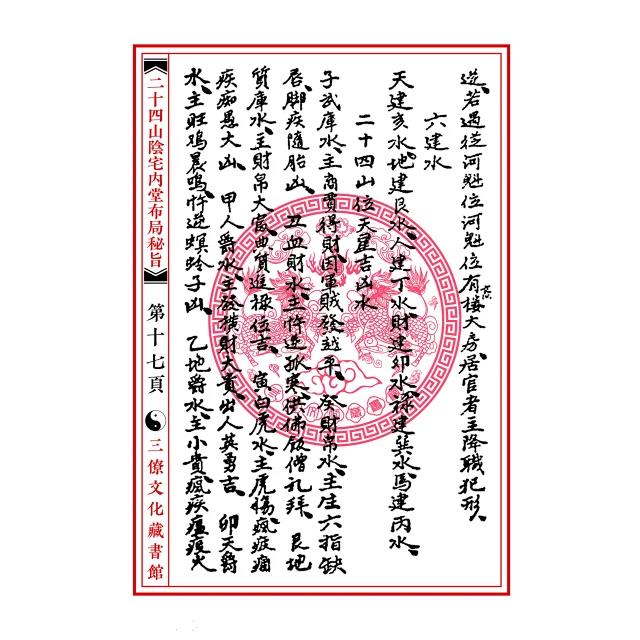 逆、若遇從河魁位河魁位有高樓大房、居官者主降職犯刑、
六建水
天建亥水、地建艮水、人建丁水、財建卯水、祿建巽水、馬建丙水、
二十四山位天星吉凶水
子武庫水、主商賈得財、因軍賊發越平、癸財帛水、主生六指缺
唇、脚疾隨胎凶、丑血財水、主忤逆孤寒、供佛飯僧礼拜、艮地
質庫水、主財帛大富、典質進祿位吉、寅白虎水、主虎傷、瘋疾痼
疾痴愚大凶、甲人爵水、主發橫財大貴、出人英勇吉、卯天爵
水、主旺鷄晨鳴、忤逆螟蛉子凶、乙地爵水、主小貴、瘋疾瘟疫火
二十四山陰宅内堂布局秘旨
第十七頁
三僚文化藏書館